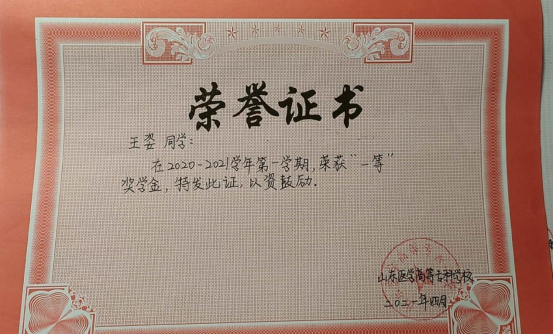 荣誉证书
王娈 同学：
在2020-2021学年第一学期，荣获“一等”
奖学金，特发此证，以资鼓励.
山东医学高等专科学校
二〇二一年四月